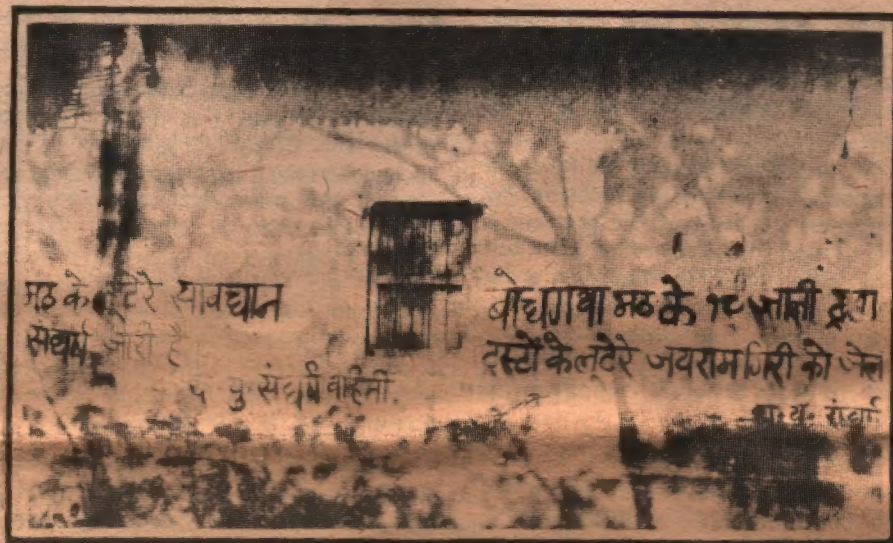 मठ के लुटेरे सावधान
संघर्ष जारी है
यु॰ संघर्ष वाहिनी.
बोधगया मठ के १८ जाली ट्रस्ट
ट्रस्टों के लुटेरे जयराम गिरी को जेल
यु॰ संघर्ष